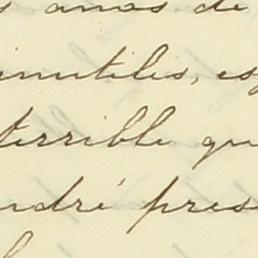 s anos de
inutiles, es
terrible qu
ndré pres